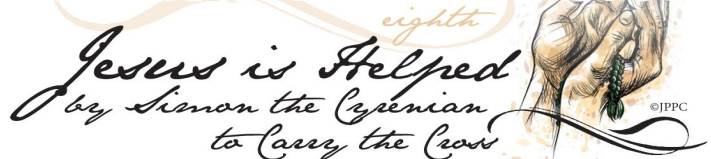 eighth
Jesus is Helped
by Simon the Cyrenian
to Carry the Cross
©JPPC